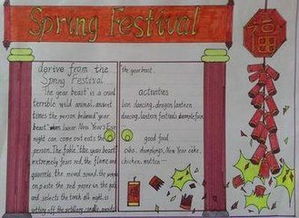 Spring Festival
福
derive from the
Spring Festival
The year beast is a cruel
terrible wild animal, ancient
times the person believed year
beast when lunar New Year's Eve
night can come out eats the
person. The fable "the year beast"
extremely fears red, the flame and
the noise, the person
on paste the red paper in the
and selects the torch all night is
setting off the
the year beast.
activities
lion dancing, dragon lantern
dancing, lantern festivals, temple fair
good food
cake, dumplings, New Year cake,
chicken, mutton